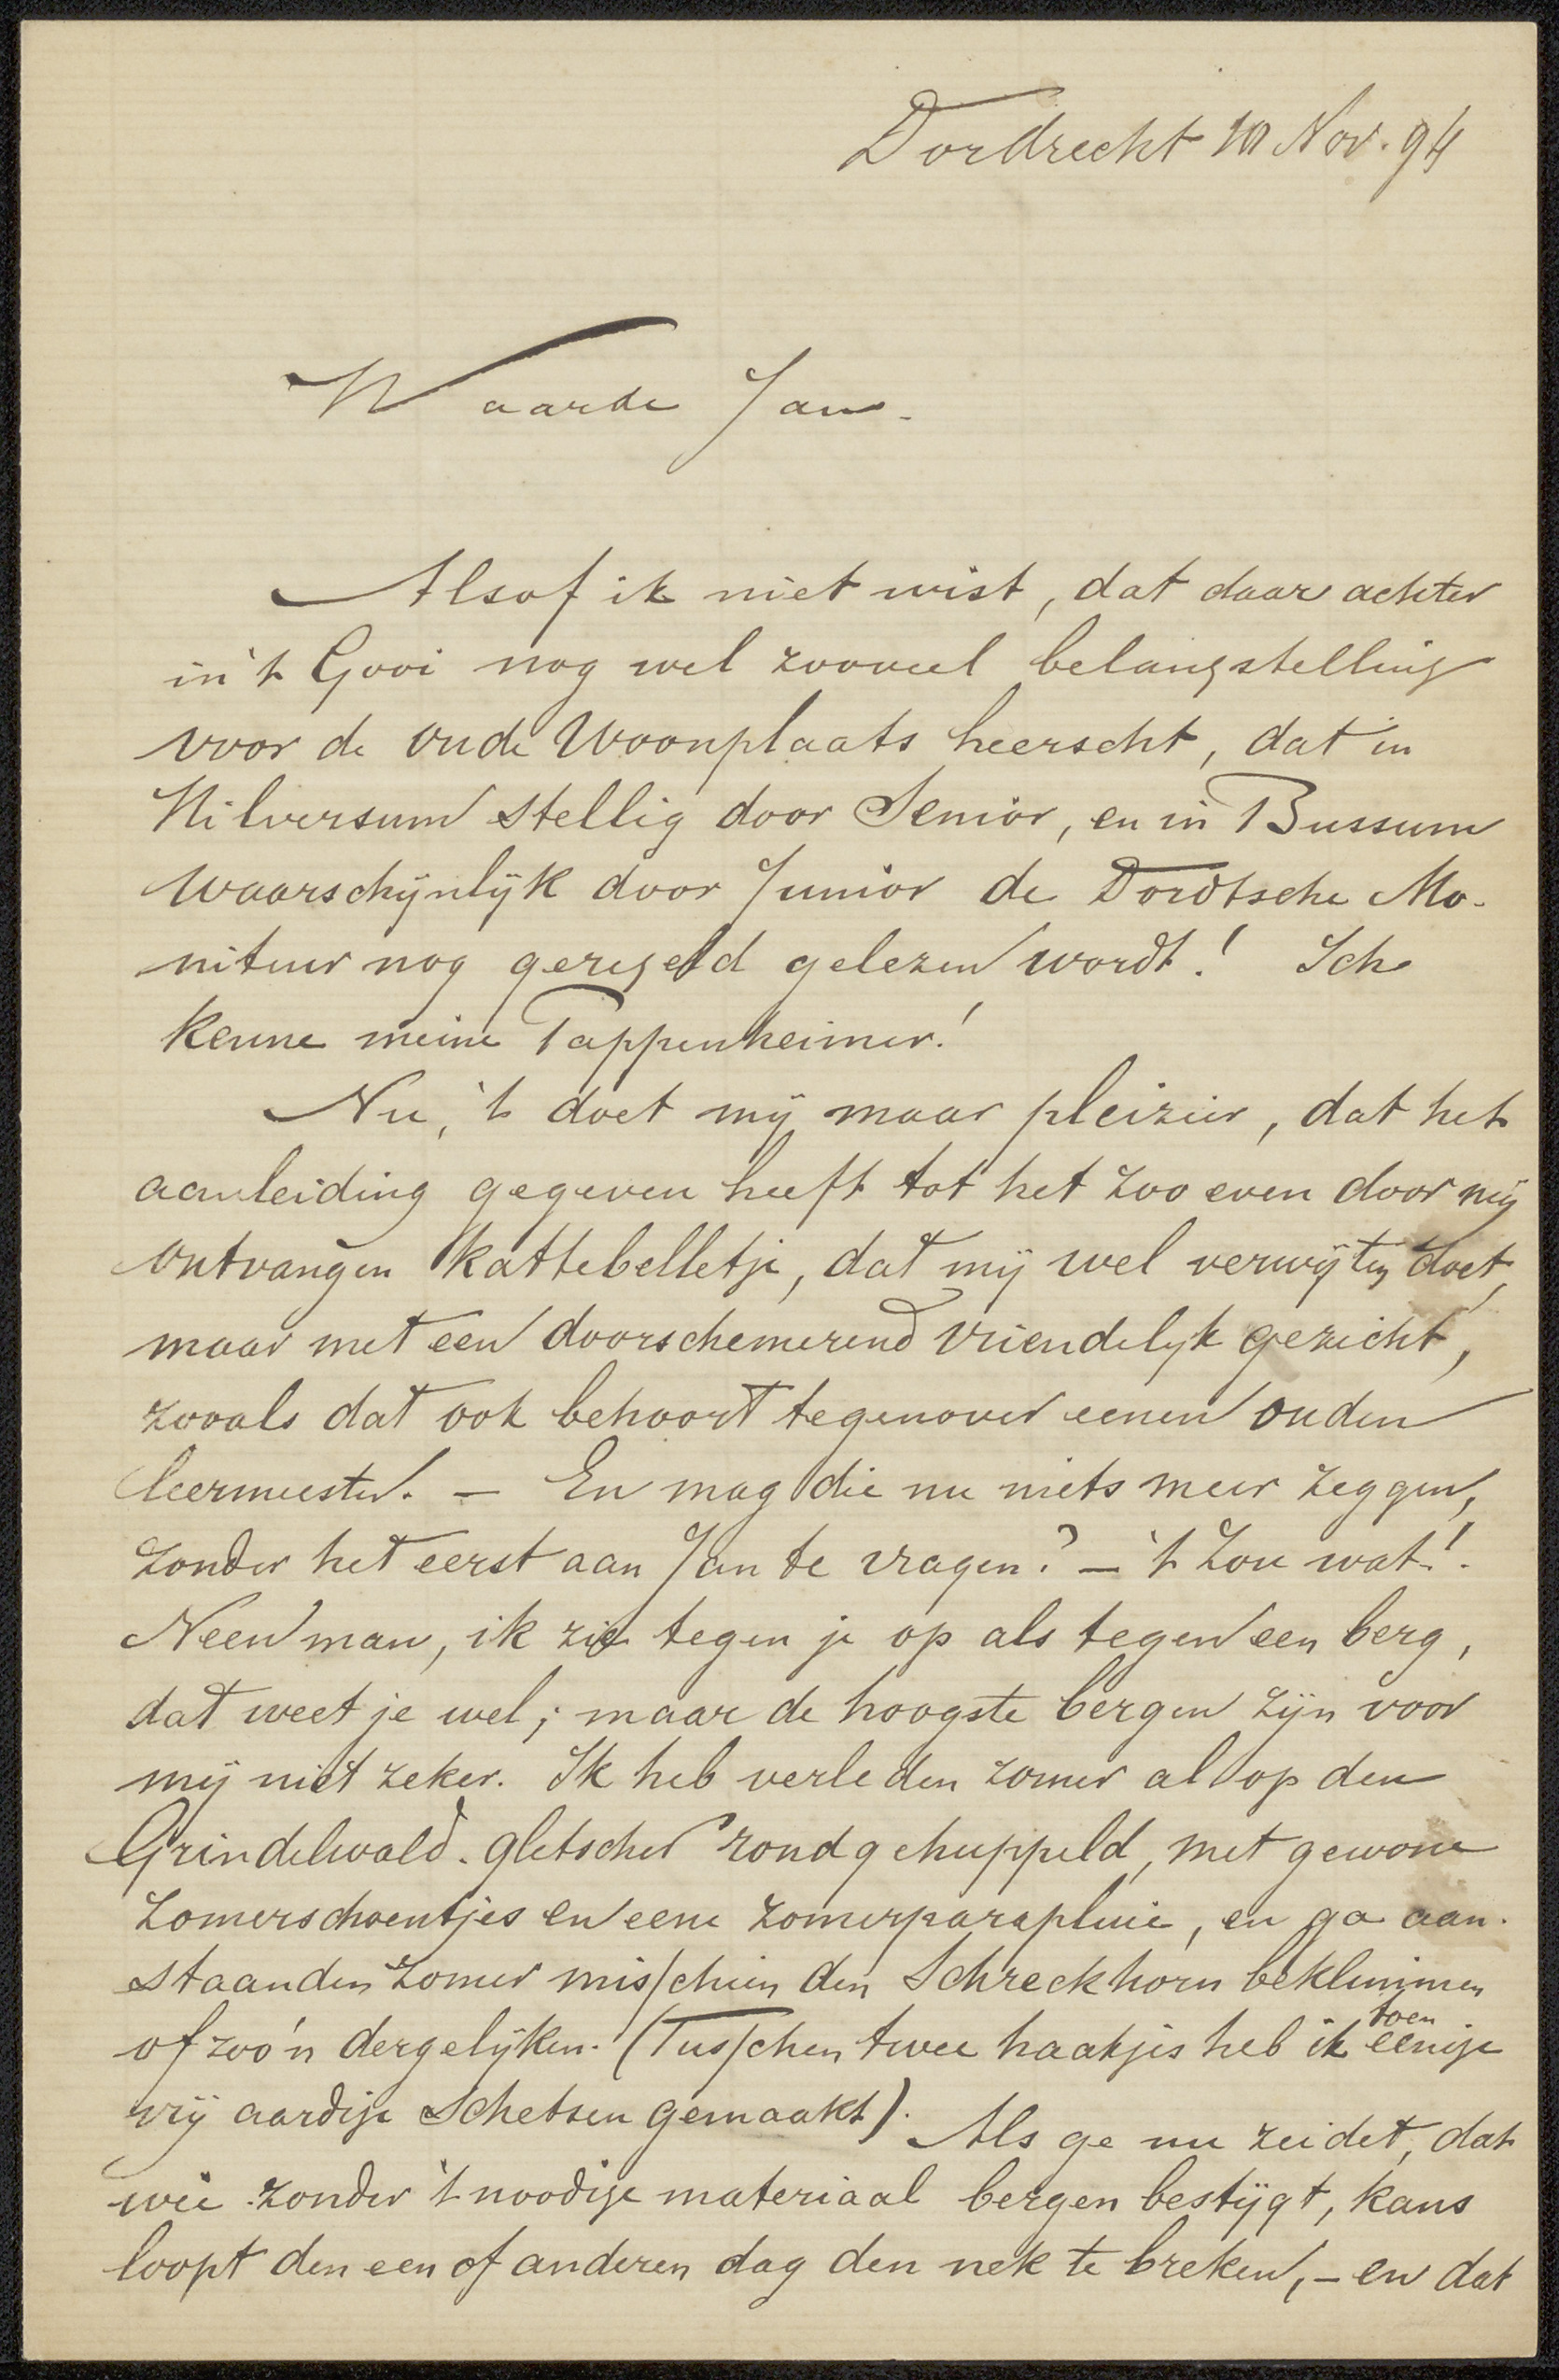 Dordrecht 10 Nov. 94
Waarde Jan.
Alsof ik niet wist, dat daar achter
in 't Gooi nog wel zooveel belangstelling
voor de oude woonplaats heerscht, dat in
Hilversum stellig door Senior, en in Bussum
waarschijnlijk door Junior de Dordtsche Mo-
niteur nog geregeld gelezen wordt! Ich
kenne meine Pappenheimer!
Nu, 't doet mij maar pleizier, dat het
aanleiding gegeven heeft tot het zoo even door mij
ontvangen kattebelletje, dat mij wel verwijten doet,
maar met een doorschemerend vriendelijk gezicht,
zooals dat ook behoort tegenover eenen ouden
leermeester. — En mag die nu niets meer zeggen,
zonder het eerst aan Jan te vragen? — 't Zou wat!.
Neen man, ik zie tegen je op als tegen een berg,
dat weet je wel; maar de hoogste bergen zijn voor
mij niet zeker. Ik heb verleden zomer al op den
Grindelwald-gletscher rondgehuppeld, met gewone
zomerschoentjes en eene zomerparapluie, en ga aan-
staanden zomer misschien den Schreckhorn beklimmen
of zoo'n dergelijken. (Tusschen twee haakjes heb ik toen eenige
vrij aardige schetsen gemaakt). Als ge nu zeidet, dat
wie zonder 't noodige materiaal bergen bestijgt, kans
loopt den een of anderen dag den nek te breken, — en dat